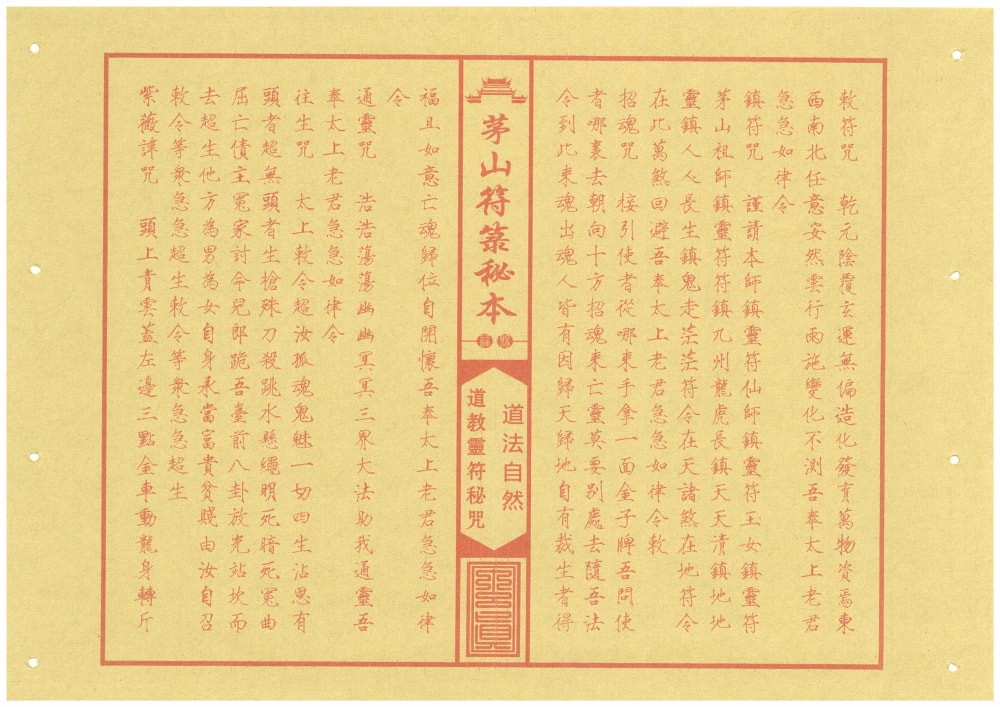 敕符咒　乾元陰覆玄運無偏造化發育萬物資焉東
西南北任意安然雲行雨施變化不測吾奉太上老君
急急如律令
鎮符咒　謹請本師鎮靈符仙師鎮靈符玉女鎮靈符
茅山祖師鎮靈符符鎮九州龍虎長鎮天天清鎮地地
靈鎮人人長生鎮鬼走茫茫符令在天諸煞在地符令
在此萬煞回避吾奉太上老君急急如律令敕
招魂咒　接引使者從哪來手拿一面金子牌吾問使
者哪裏去朝向十方招魂來亡靈莫要別處去隨吾法
令到此來魂出魂人皆有因歸天歸地自有裁生者得
茅山符箓秘本
道法自然
道教靈符秘咒
福且如意亡魂歸位自開懷吾奉太上老君急急如律
令
通靈咒　浩浩蕩蕩幽幽冥冥三界大法助我通靈吾
奉太上老君急急如律令
往生咒　太上敕令超汝孤魂鬼魅一切四生沾恩有
頭者超無頭者生槍殊刀殺跳水懸繩明死暗死冤曲
屈亡債主冤家討命兒郎跪吾臺前八卦放光站坎而
去超生他方為男為女自身承當富貴貧賤由汝自召
敕令等衆急急超生敕令等衆急急超生
紫薇諱咒　頭上青雲蓋左邊三點金車動龍身轉斤